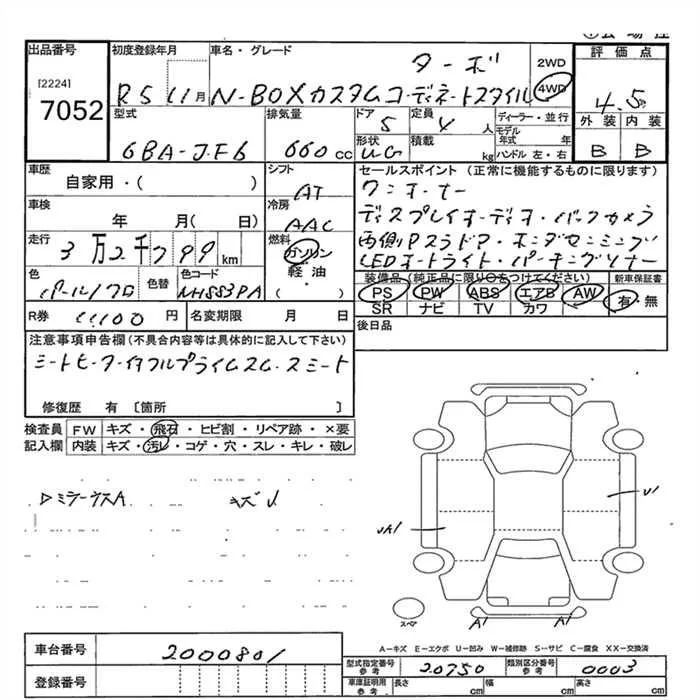 出品番号 初度登録年月 車名・グレード 評価点
[2224]
7052
ターボ 2WD
R5 11月 N-BOXカスタムコーディネートスタイル 4WD 4.5
型式 排気量 ドア 定員 ディーラー・並行 外装 内装
6BA-JF6 660cc 5 4人 モデル年式 年 B B
形状 積載 kg ハンドル 左・右
UG
車歴 シフト セールスポイント (正常に機能するものに限ります)
自家用・( ) AT ワンオーナー
車検 冷房 ディスプレイオーディオ・バックカメラ
年 月( 日) AAC 両側Pスラドア・ホンダセンシング
走行 燃料 LEDオートライト・パーキングソナー
3万2千799km ガソリン
軽油
・( )
色 色替 色コード 装備品 (純正品に限り○をつけてください) 新車保証書
パール/クロ NH883PA PS PW ABS エアB AW 有・無
SR ナビ TV カワ
R券 11,100円 名変期限 月 日 後日品
注意事項申告欄(不具合内容等は具体的に記入して下さい)
シートヒーター
修復歴 有 〔箇所 〕
検査員 FW キズ・飛石・ヒビ割・リペア跡・×要
記入欄 内装 キズ・汚レ・コゲ・穴・スレ・キレ・破レ
キズ
U1
A1 A1
スペア
A-キズ E-エクボ U-凹み W-補修跡 S-サビ C-腐食 XX-交換済
車台番号 2000801
型式指定番号 参考 20750 類別区分番号 参考 0003
登録番号 車庫証明用 参考 長さ cm 幅 cm 高さ cm